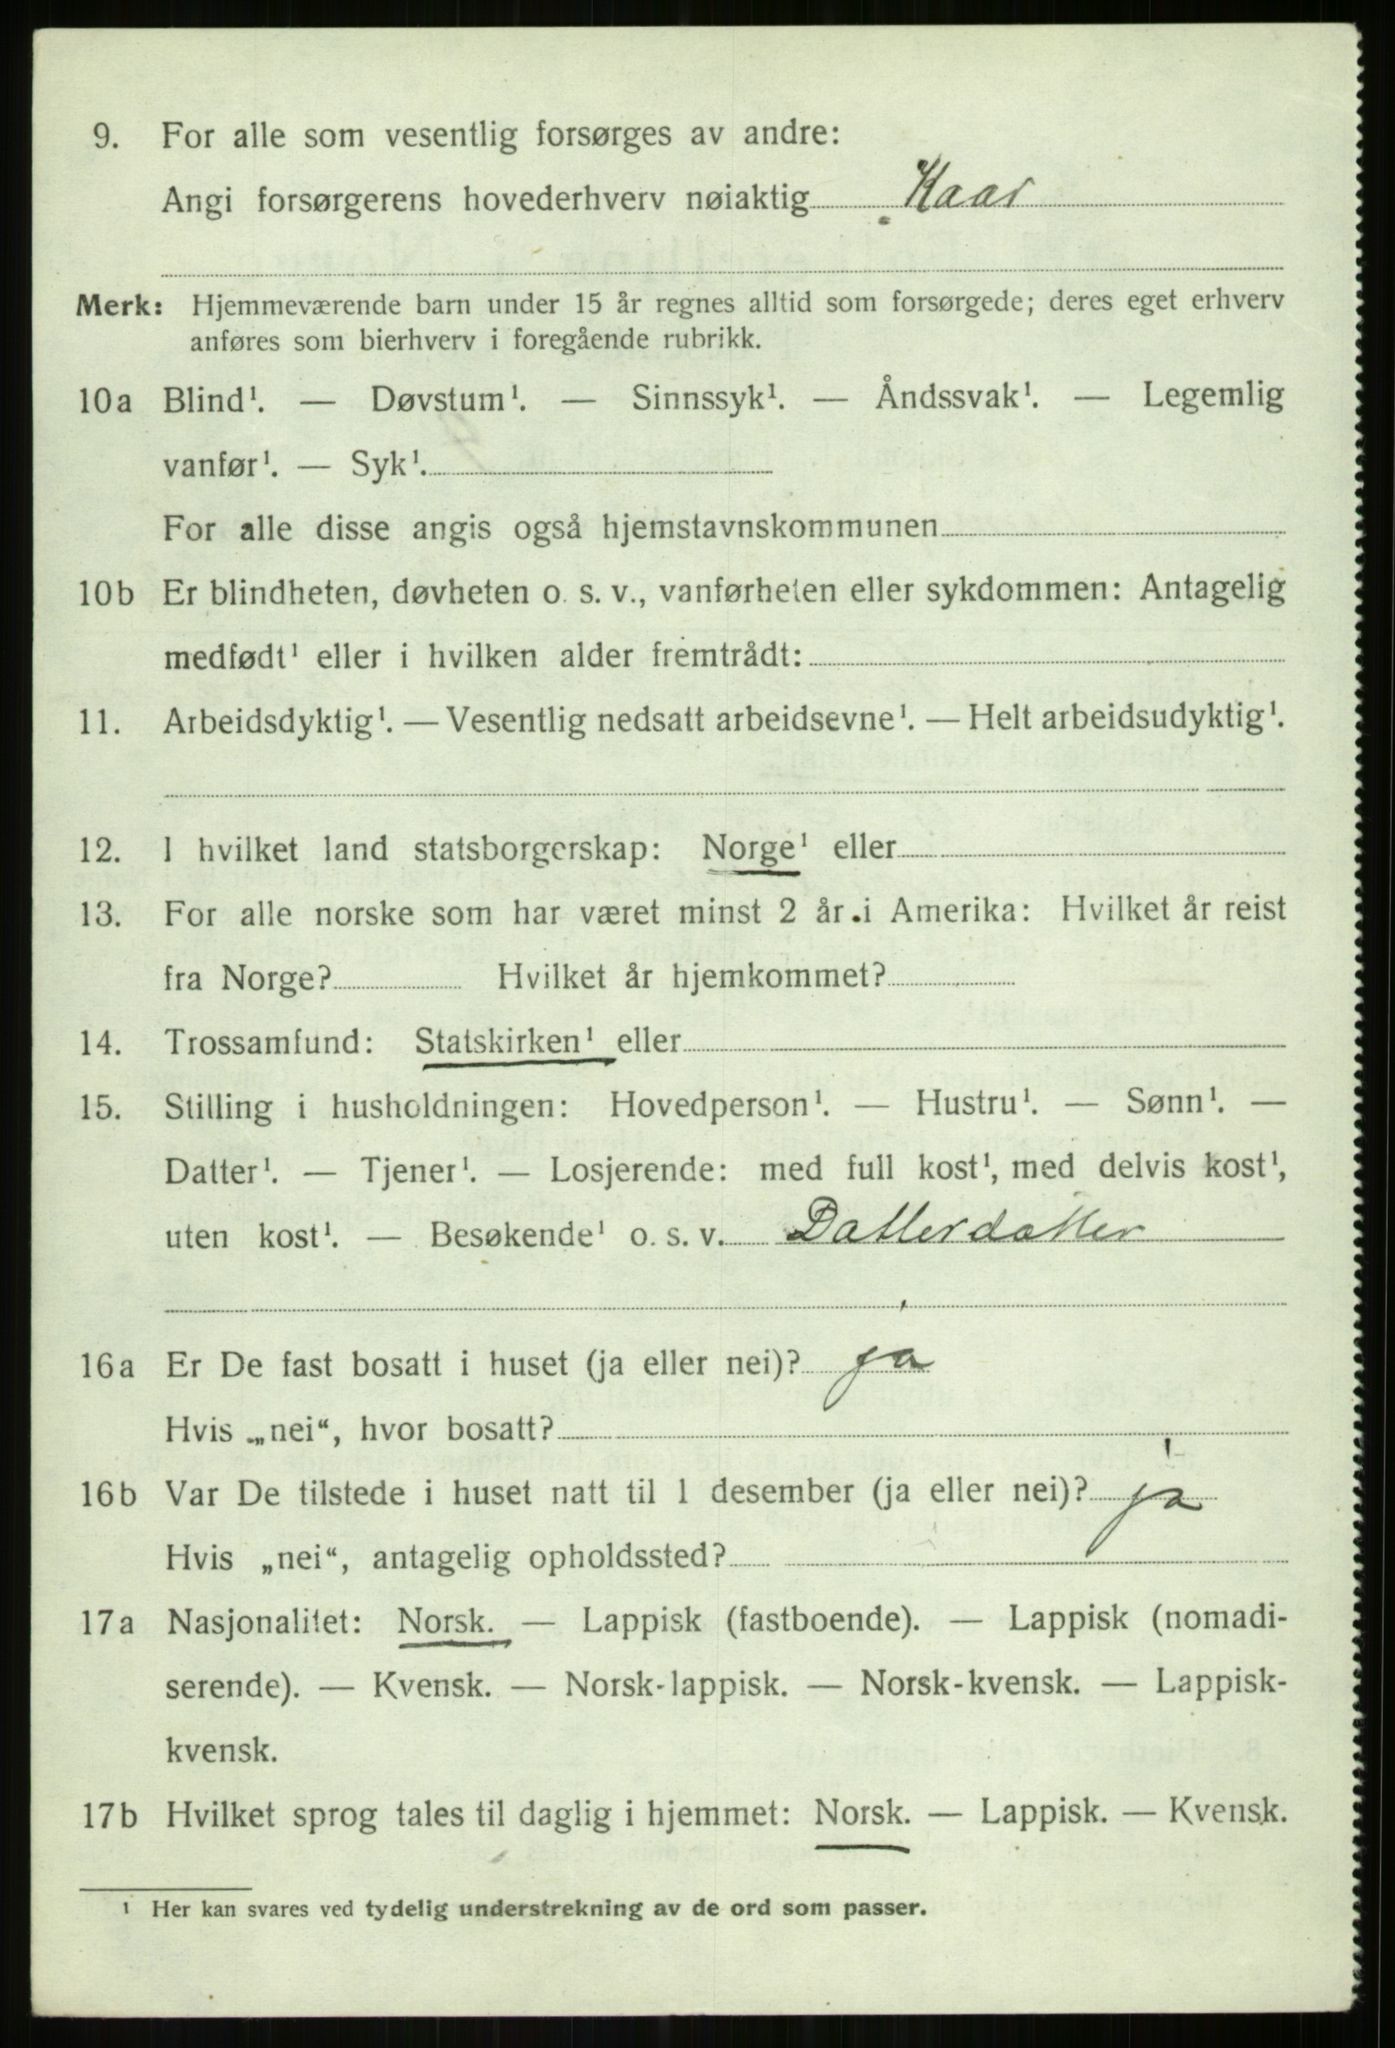 9. For alle som vesentlig forsørges av andre:
Angi forsørgerens hovederhverv nøiaktig Kaar
Merk: Hjemmeværende barn under 15 år regnes alltid som forsørgede; deres eget erhverv
anføres som bierhverv i foregående rubrikk.
10a Blind¹. — Døvstum¹. — Sinnssyk¹. — Åndssvak¹. — Legemlig
vanfør¹. — Syk¹.
For alle disse angis også hjemstavnskommunen
10b Er blindheten, døvheten o. s. v., vanførheten eller sykdommen: Antagelig
medfødt¹ eller i hvilken alder fremtrådt:
11. Arbeidsdyktig¹. — Vesentlig nedsatt arbeidsevne¹. — Helt arbeidsudyktig¹.
12. I hvilket land statsborgerskap: Norge¹ eller
13. For alle norske som har været minst 2 år i Amerika: Hvilket år reist
fra Norge? Hvilket år hjemkommet?
14. Trossamfund: Statskirken¹ eller
15. Stilling i husholdningen: Hovedperson¹. — Hustru¹. — Sønn¹. —
Datter¹. — Tjener¹. — Losjerende: med full kost¹, med delvis kost¹,
uten kost¹. — Besøkende¹ o. s. v. Datterdatter
16a Er De fast bosatt i huset (ja eller nei)? ja
Hvis „nei“, hvor bosatt?
16b Var De tilstede i huset natt til 1 desember (ja eller nei)? ja
Hvis „nei“, antagelig opholdssted?
17a Nasjonalitet: Norsk. — Lappisk (fastboende). — Lappisk (nomadi-
serende). — Kvensk. — Norsk-lappisk. — Norsk-kvensk. — Lappisk-
kvensk.
17b Hvilket sprog tales til daglig i hjemmet: Norsk. — Lappisk. — Kvensk.
¹ Her kan svares ved tydelig understrekning av de ord som passer.